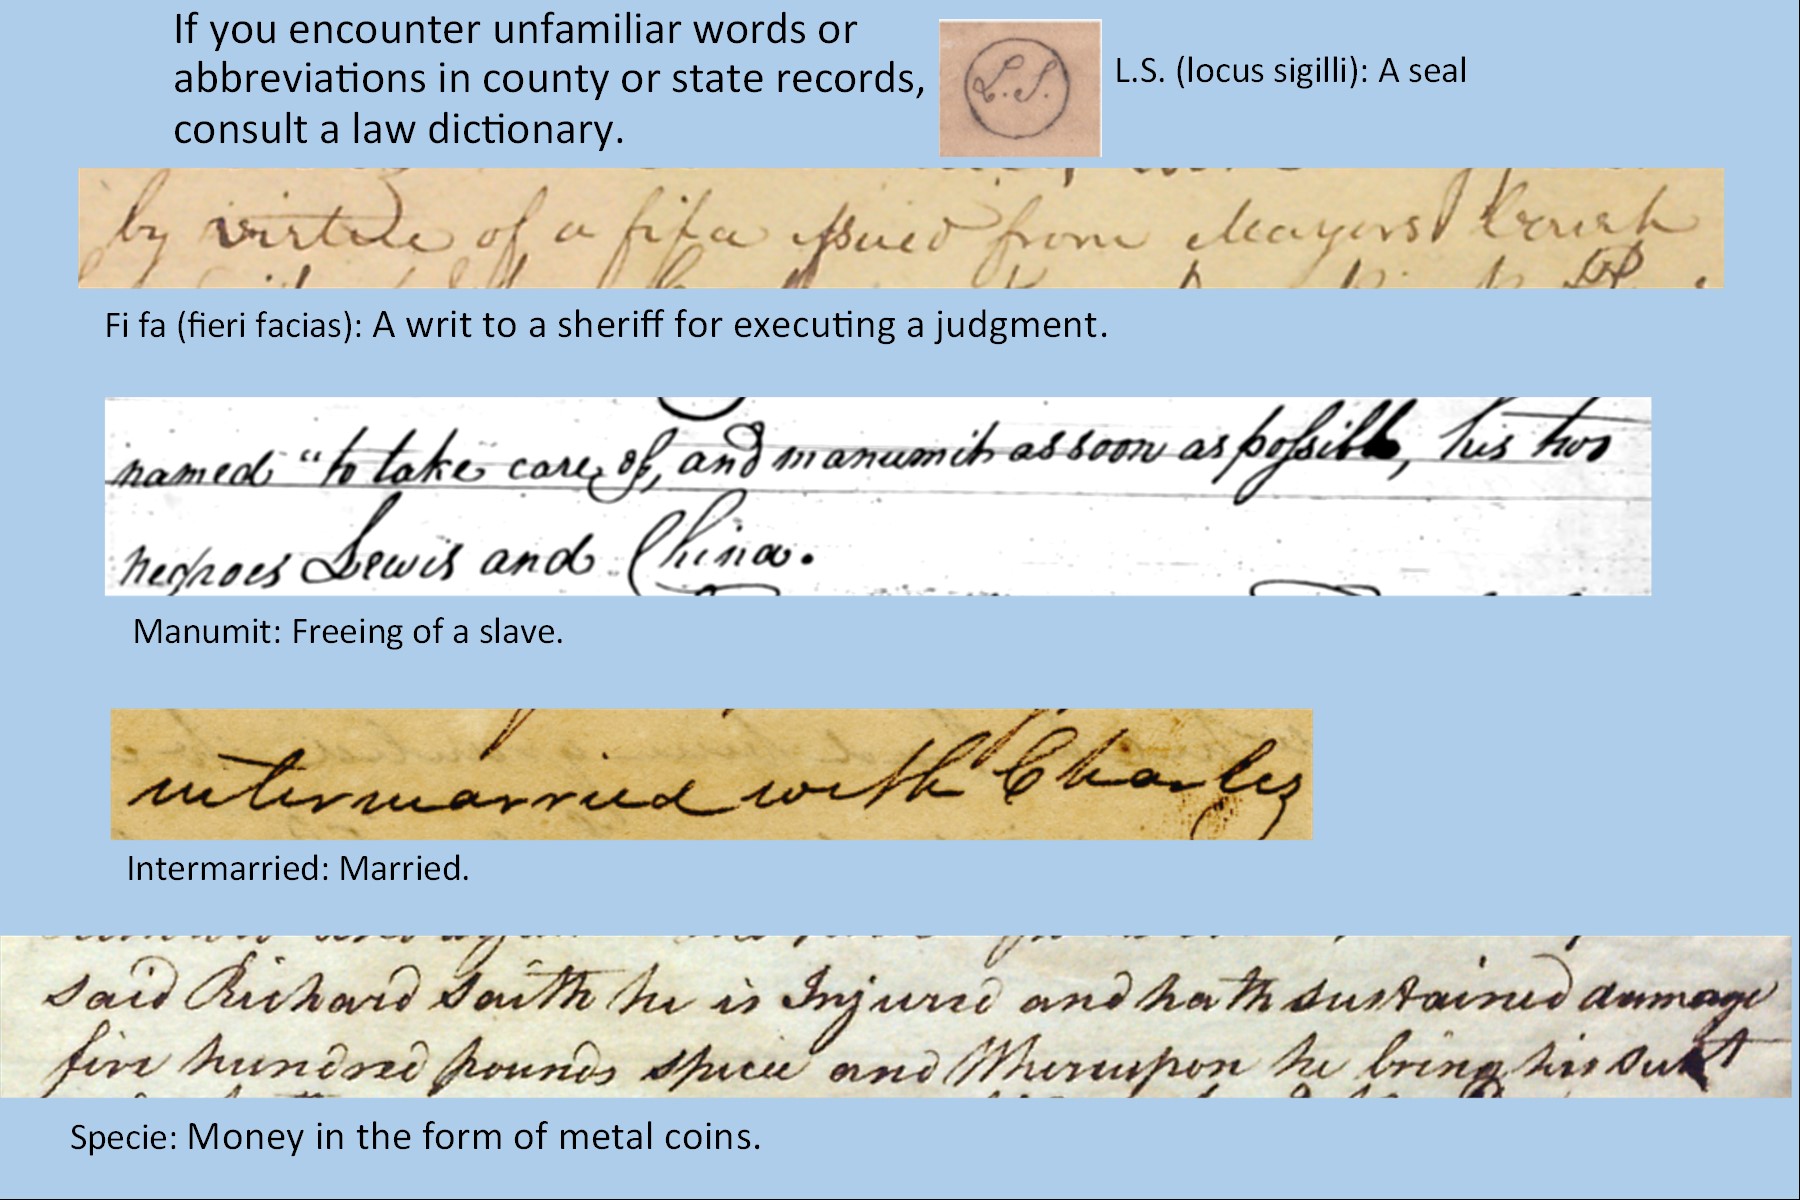 If you encounter unfamiliar words or
abbreviations in county or state records,
consult a law dictionary.
L.S.
L.S. (locus sigilli): A seal
by virtue of a fifa issued from Mayors Court
Fi fa (fieri facias): A writ to a sheriff for executing a judgment.
named "to take care of, and manumit as soon as possible, his two
negroes Lewis and China.
Manumit: Freeing of a slave.
intermarried with Charles
Intermarried: Married.
said Richard saith he is Injured and hath sustained damage
five hundred pounds specie and Whereupon he bring his suit
Specie: Money in the form of metal coins.